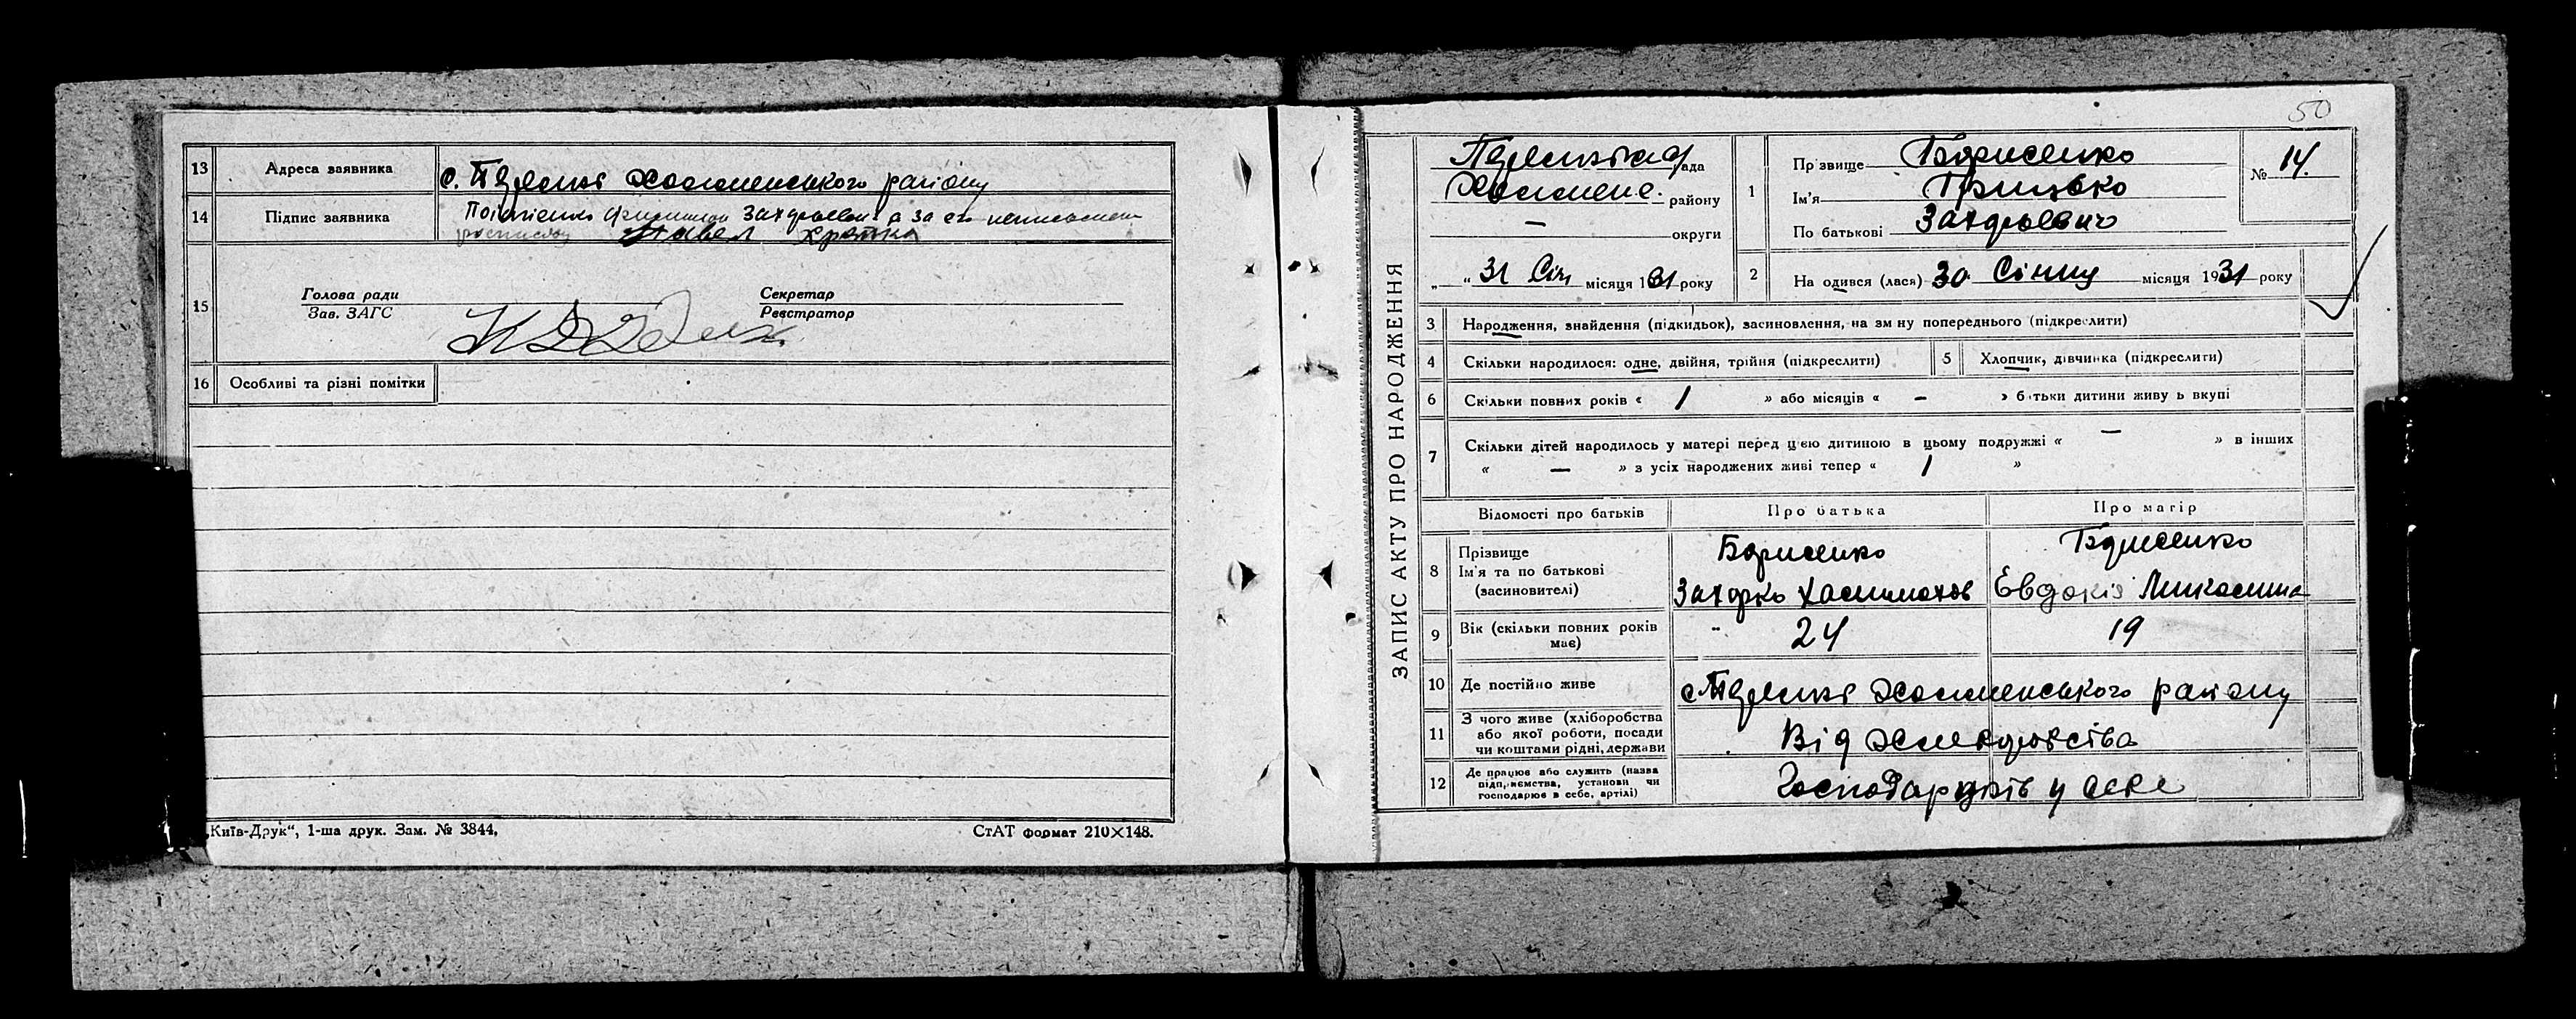 13 Адреса заявника с.
району
14 Підпис заявника
Павел
15
Голова ради
Зав. ЗАГС
Секретар
Реєстратор
16 Особливі та різні помітки
„Київ-Друк“, 1-ша друк. Зам. № 3844,
СтАТ формат 210×148.
50
ЗАПИС АКТУ ПРО НАРОДЖЕННЯ
рада
району
— округи
„ “ 31 Січ місяця 1931 року
1
Пр звище Борисенко
Ім'я Грицько
По батькові Захарьевич
№ 14.
2 На одився (лася) 30 Січня місяця 1931 року
3 Народження, знайдення (підкидьок), засиновлення, на зм ну попереднього (підкреслити)
4 Скільки народилося: одне, двійня, трійня (підкреслити)
5 Хлопчик, дівчинка (підкреслити)
6 Скільки повних років « 1 » або місяців « — » б тьки дитини живу ь вкупі
7 Скільки дітей народилось у матері перед цією дитиною в цьому подружжі « — » в інших
« — » з усіх народжених живі тепер « 1 »
Відомості про батьків
Про батька
Про матір
8 Прізвище
Ім'я та по батькові
(засиновителі)
Борисенко
Захарко
Борисенко
Евдокія
9 Вік (скільки повних років має)
24
19
10 Де постійно живе
с. району
11 З чого живе (хліборобства
або якої роботи, посади
чи коштами рідні, держави
Від
12 Де працює або служить (назва
підприємства, установи чи
господарює в себе, артілі)
Господарюють у себе